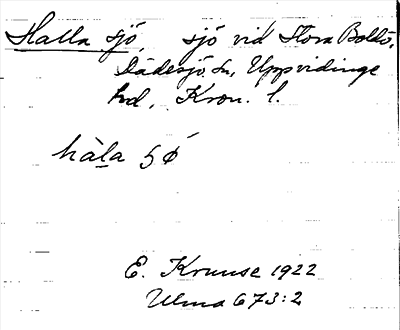 Halla sjö, sjö vid Stora Boldö,
Dädesjö sn, Uppvidinge
hd, Kron. l.
hàla 5ǿ
E. Kruuse 1922
Ulma 673:2